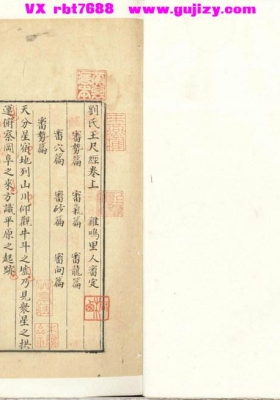 VX rbt7688 www.gujizy.com
劉氏玉尺經卷上
雞鳴里人審定
審勢篇 審氣篇 審龍篇
審穴篇 審砂篇 審向篇
審勢篇
天分星宿地列山川仰觀牛斗之墟乃見衆星之拱
運俯察岡阜之來方識平原之起跡